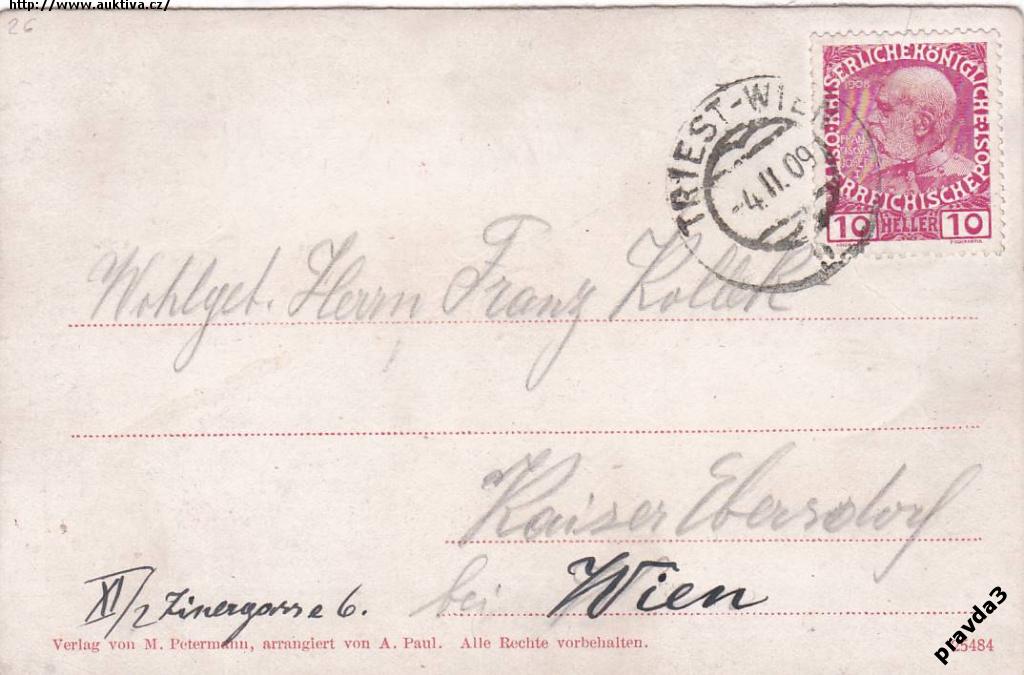 http://www.auktiva.cz/
26
KAISERLICHE KÖNIGLICHE ÖSTERREICHISCHE POST
1908
10 HELLER 10
TRIEST-WIEN
-4.II.09
Wohlgeb. Herrn Franz Kollek
Kaiser Ebersdorf
bei Wien
XI/2 Zinergasse 6.
Verlag von M. Petermann, arrangiert von A. Paul. Alle Rechte vorbehalten.
5484
pravda3